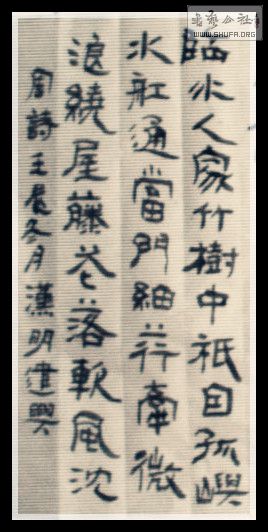 臨水人家竹樹中祗因孤嶼
水舡通當門細荇牽微
浪繞屋藤花落軟風沈
周詩壬辰冬月漢明建興
书艺公社
WWW.SHUFA.ORG